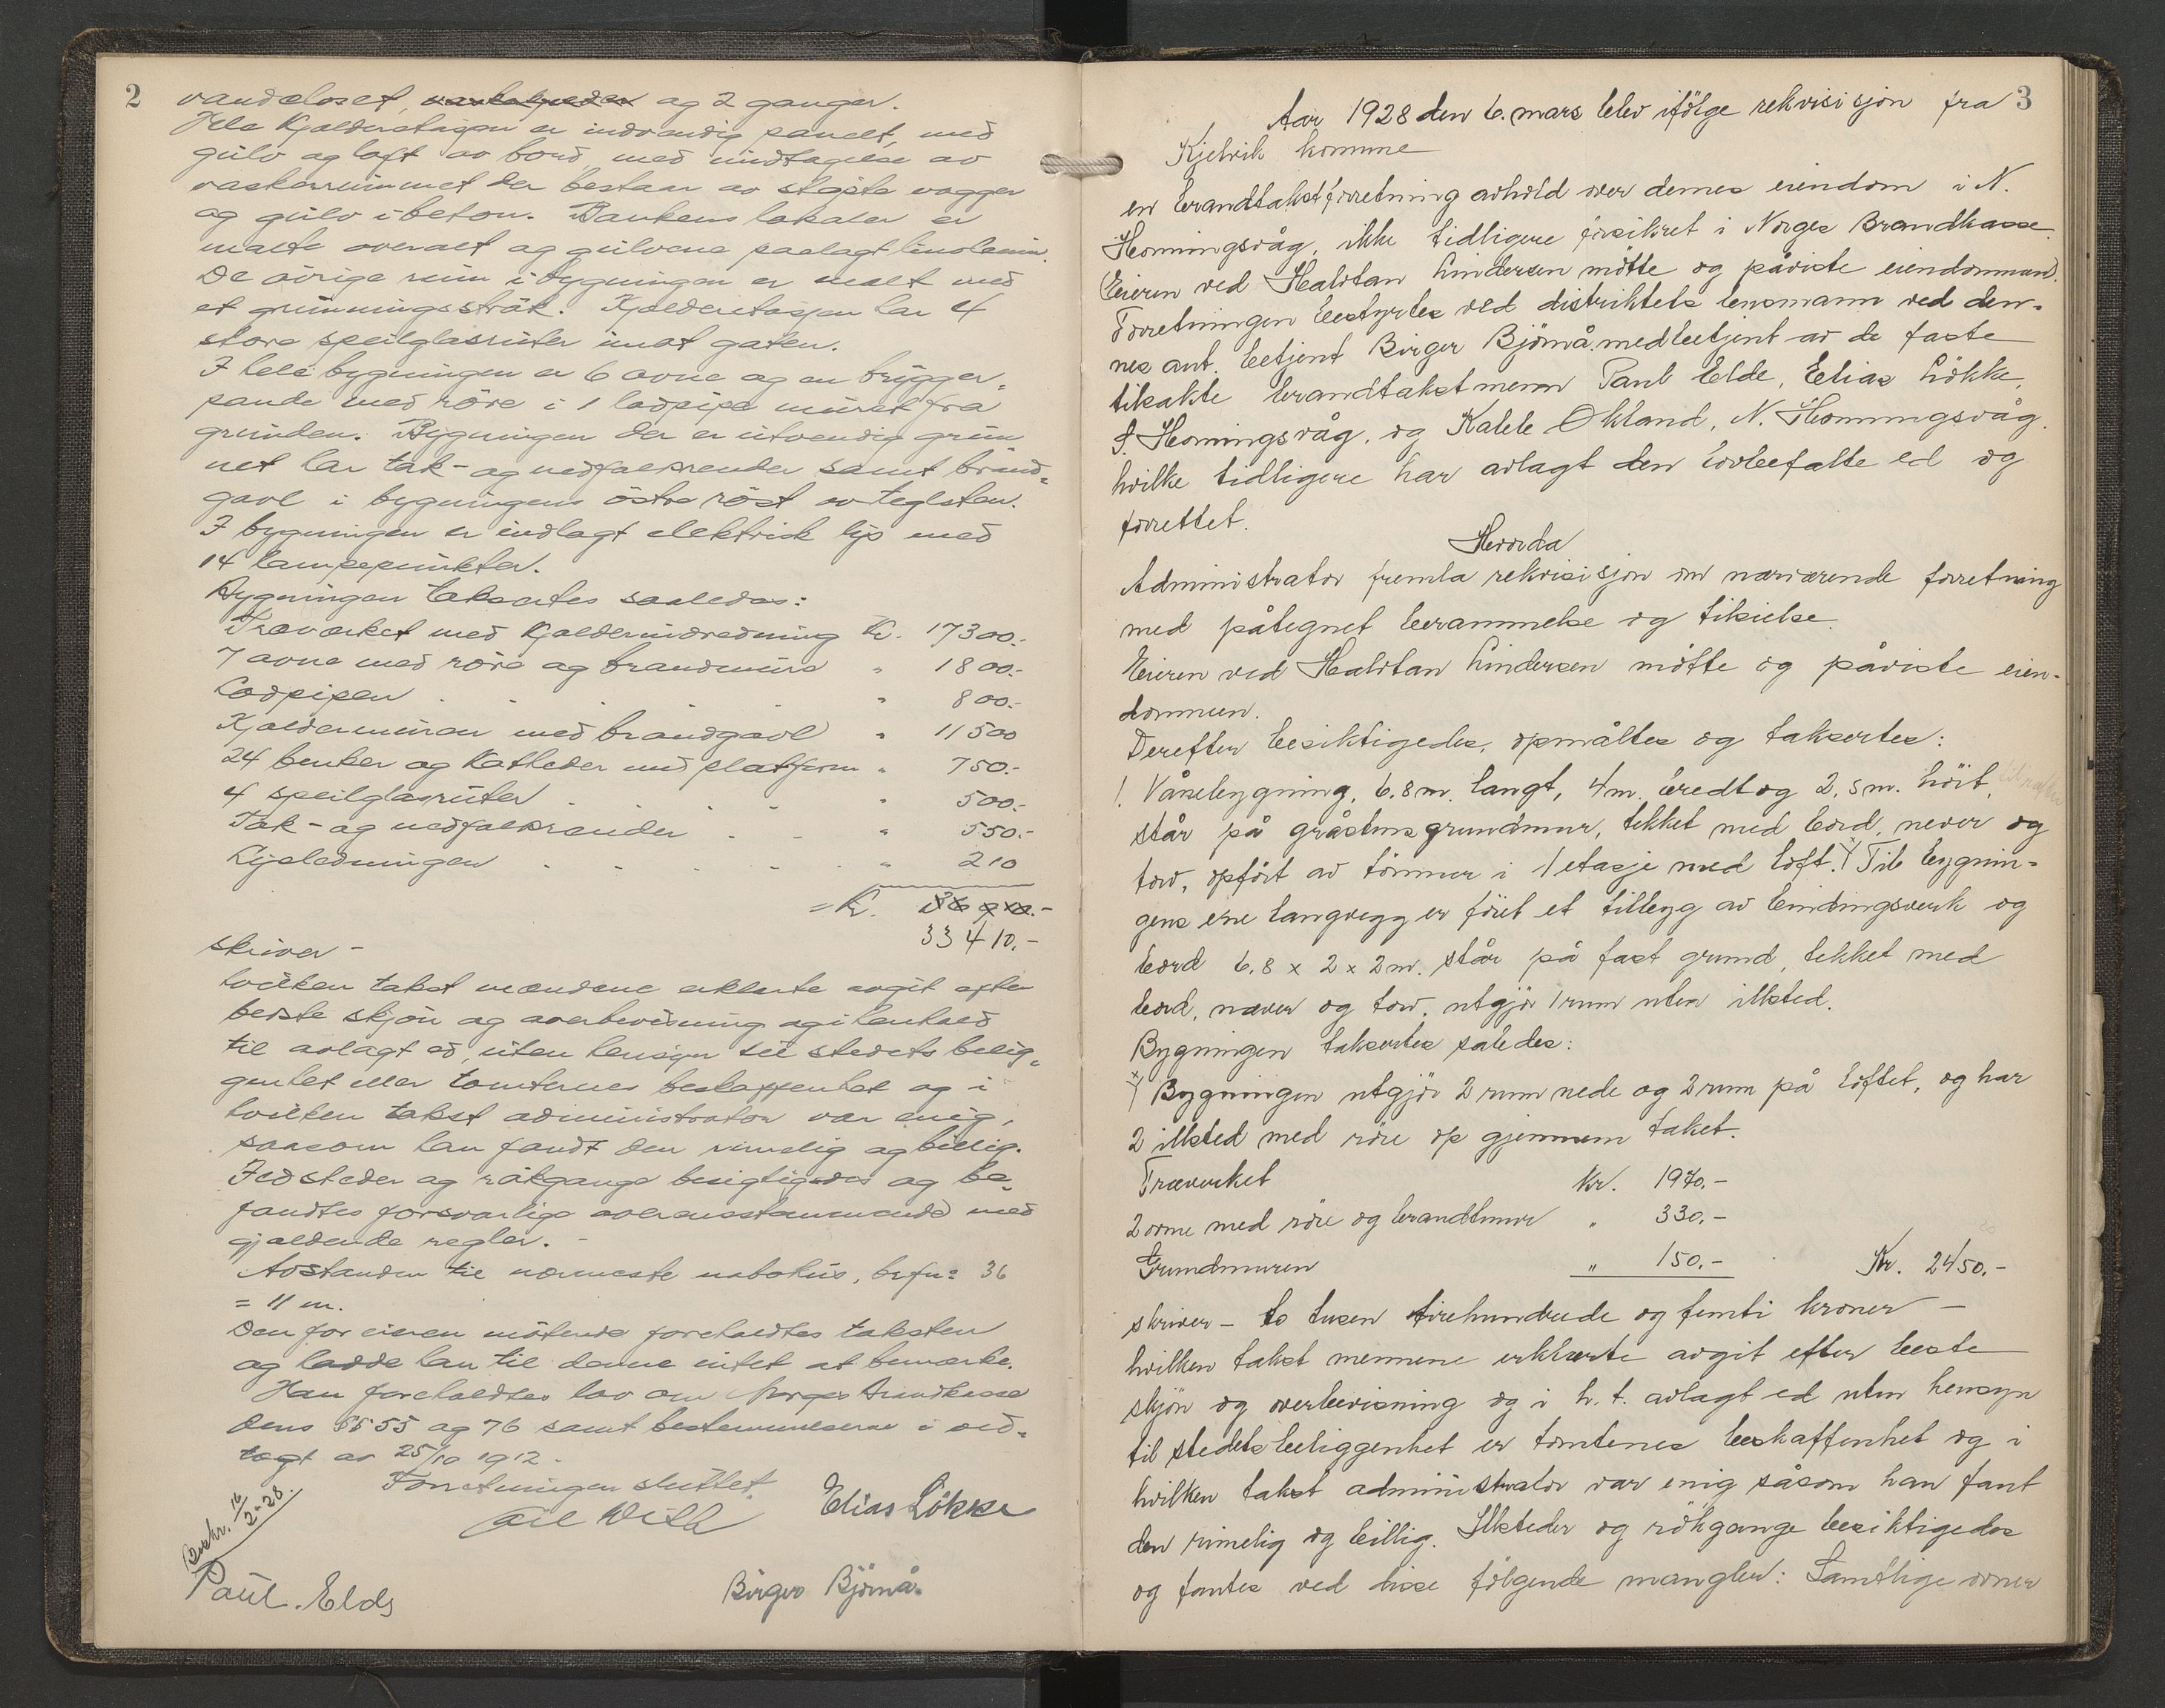 2
vandcloset, vaskekjælder og 2 ganger.
Hele Kjælderetagen er indvendig panelt, med
gulv og loft av bord med undtagelse av
vaskerummet der bestaar av støpte vægger
og gulv i beton. Bankens lokaler er
malte overalt og gulvene paalagt linoleum.
De øvrige rum i bygningen er malt med
et grunningsstrøk. Kjælderetasjen har 4
store speilglasruter imot gaten.
I hele bygningen er 6 ovne og en brygger-
pande med røre i 1 lodpipe muret fra
grunden. Bygningen der er utvendig grun
net har tak- og nedfaldsrender samt brand-
gavl i bygningens østre røst av teglsten.
I bygningen er indlagt elektrisk lys med
14 lampepunkter.
Bygningen taksertes saaledes:
Træverket med Kjælderindredning Kr. 17300.-
7 ovne med røre og brandmure " 1800.-
Lodpipen . . . " 800.-
Kjældermuren med brandgavl " 11500
24 benker og Katheder med platform " 750.-
4 speilglasruter . . . . " 500.-
Tak- og nedfaldsrender . . " 550.-
Lysledningen . . . . . " 210
= Kr.
33410.-
skriver -
hvilken takst mændene erklærte avgit efter
beste skjøn og overbevisning og i henhold
til avlagt ed, uten hensyn til stedets belig-
genhet eller tomternes beskaffenhet og i
hvilken takst administrator var enig,
saasom han fandt den rimelig og billig.
Ildsteder og røkgange besigtigedes og be-
fandtes forsvarlige overensstemmende med
gjældende regler. -
Avstanden til nærmeste nabohus, brfn: 36
= 11 m.
Den for eieren møtende foreholdtes taksten
og hadde han til denne intet at bemærke.
Han foreholdtes lov om Norges Brandkasse
dens §§ 55 og 76 samt bestemmelserne i ved-
tægt av 25/10 1912.
Forretningen sluttet.
Elias Lökke
Utskr. 16/2-28.
Paul. Elde
Birger Björnå.
3
Aar 1928 den 6. mars blev ifölge rekvisisjon fra
Kjelvik komune
en brandtakstforretning avhold over dennes eiendom i N.
Honningsvåg, ikke tidligere forsikret i Norges Brandkasse.
Eieren ved Halvdan Lindersen mötte og påviste eiendommen.
Forretningen bestyrtes ved distriktets lensmann ved den-
nes aut. betjent Birger Björnå, medbetjent av de faste
tilsakte brandtakstmenn Paul Elde, Elias Lökke,
S. Honningsvåg, og Kalle Økland, N. Honningsvåg.
hvilke tidligere har avlagt den lovbefalte ed og
forrettet.
Hvorda
Administrator fremla rekvisisjon om nærværende forretning
med påtegnet berammelse og tilsielse.
Eieren ved Halvdan Lindersen mötte og påviste eien-
dommen.
Derefter besiktigedes, opmåltes og taksertes:
1. Våneby̦gning, 6.8 m. langt, 4 m. bredt og 2,5 m. höit,
står på gråstensgrundmur, tekket med bord, never og
torv, opfört av tömmer i 1 etasje med loft. x) Til bygnin-
gens ene langvegg er föiet et tillegg av bindingsverk og
bord 6.8 x 2 x 2 m. står på fast grund, tekket med
bord, never og torv, utgjör 1 rum uten illsted.
Bygningen taksertes således:
x) Bygningen utgjör 2 rum nede og 2 rum på loftet, og har
2 illsted med röre op gjennem taket.
Træverket kr. 1970.-
2 ovne med röre og brandmur " 330.-
Grundmuren " 150.- Kr. 2450.-
skriver - to tusen firehundrede og femti kroner -
hvilken takst mennene erklærte avgit efter beste
skjön og overbevisning og i h. t. avlagt ed uten hensyn
til stedets beliggenhet er tomtenes beskaffenhet og i
hvilken takst administrator var enig såsom han fant
den rimelig og billig. Illsteder og rökgange besiktigedes
og fantes ved disse fölgende mangler: Samtlige ovner